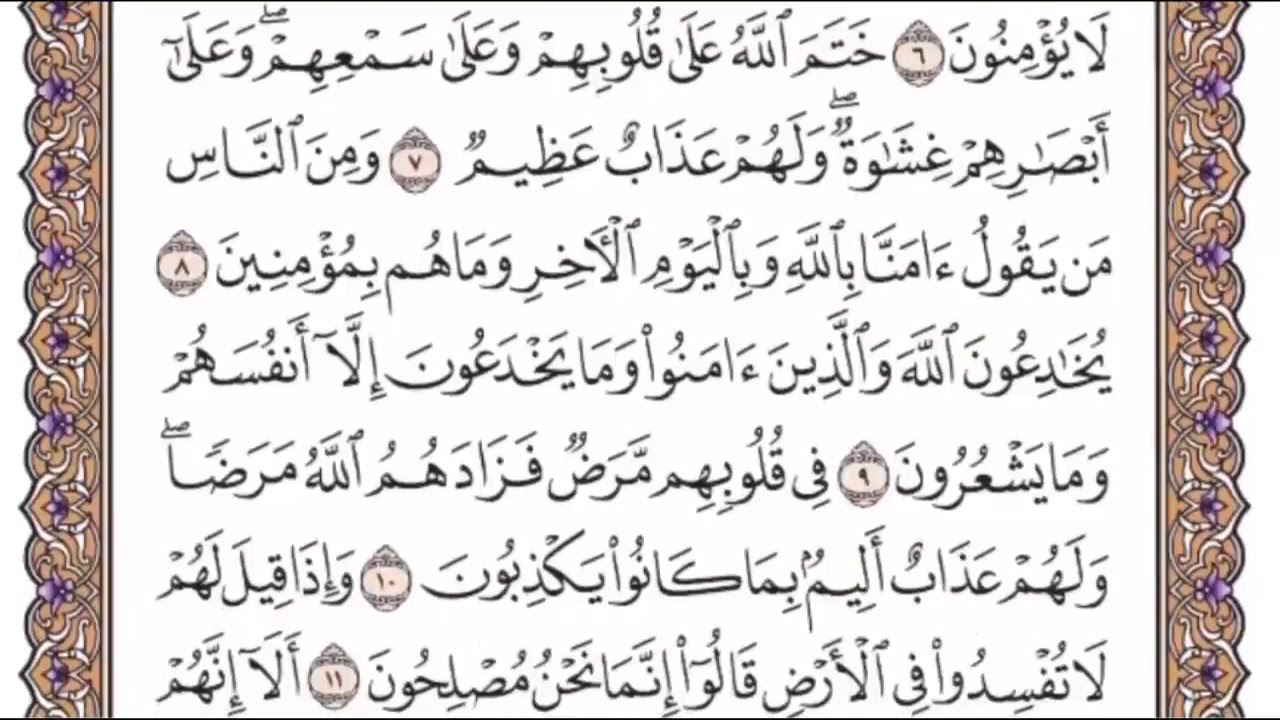 لَا يُؤْمِنُونَ ٦ خَتَمَ ٱللَّهُ عَلَىٰ قُلُوبِهِمْ وَعَلَىٰ سَمْعِهِمْۖ وَعَلَىٰٓ
أَبْصَٰرِهِمْ غِشَٰوَةٌۖ وَلَهُمْ عَذَابٌ عَظِيمٌ ٧ وَمِنَ ٱلنَّاسِ
مَن يَقُولُ ءَامَنَّا بِٱللَّهِ وَبِٱلْيَوْمِ ٱلْأَخِرِ وَمَا هُم بِمُؤْمِنِينَ ٨
يُخَٰدِعُونَ ٱللَّهَ وَٱلَّذِينَ ءَامَنُوا۟ وَمَا يَخْدَعُونَ إِلَّآ أَنفُسَهُمْ
وَمَا يَشْعُرُونَ ٩ فِى قُلُوبِهِم مَّرَضٌ فَزَادَهُمُ ٱللَّهُ مَرَضًاۖ
وَلَهُمْ عَذَابٌ أَلِيمٌۢ بِمَا كَانُوا۟ يَكْذِبُونَ ١٠ وَإِذَا قِيلَ لَهُمْ
لَا تُفْسِدُوا۟ فِى ٱلْأَرْضِ قَالُوٓا۟ إِنَّمَا نَحْنُ مُصْلِحُونَ ١١ أَلَآ إِنَّهُمْ